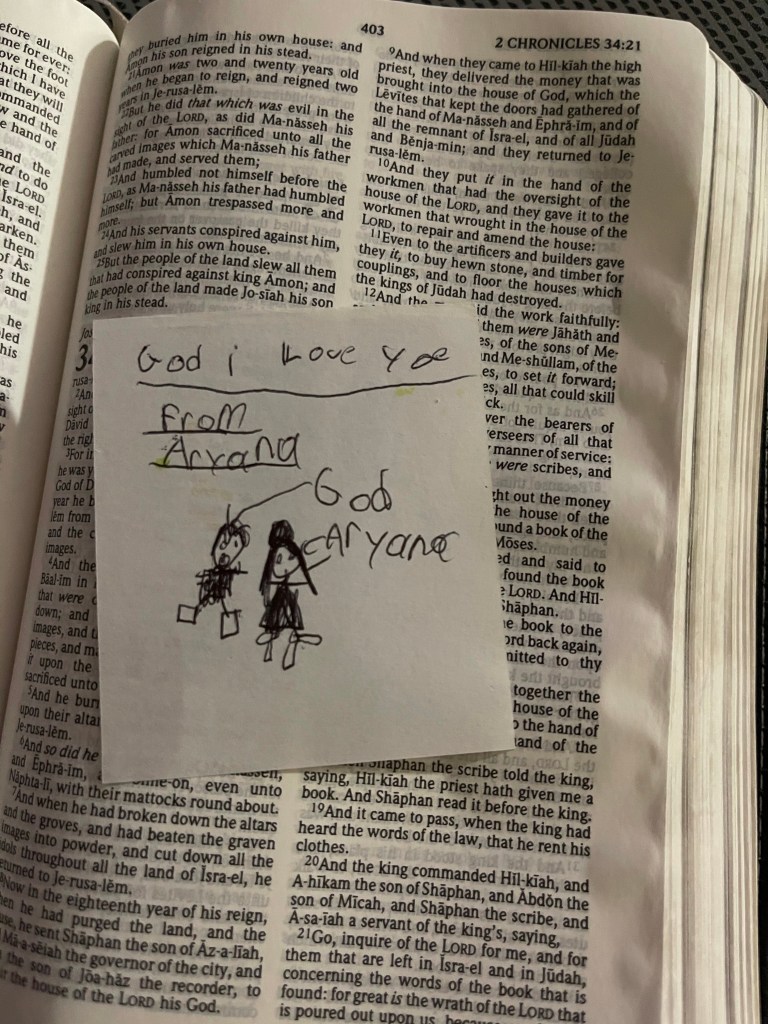 403
2 CHRONICLES 34:21
efore all the
me for ever:
ove the foot
hich I have
at they will
ommanded
w and the
e hand of
and the
nd to do
e LORD
Isra-el.
h, and
arken.
them
of As-
g the
and
he
led
his
they buried him in his own house: and
Amon his son reigned in his stead.
21Amon was two and twenty years old
when he began to reign, and reigned two
years in Je-rusa-lēm.
22But he did that which was evil in the
sight of the LORD, as did Ma-nāsseh his
father: for Amon sacrificed unto all the
carved images which Ma-nāsseh his father
had made, and served them;
23And humbled not himself before the
LORD, as Ma-nāsseh his father had humbled
himself; but Amon trespassed more and
more.
24And his servants conspired against him,
and slew him in his own house.
25But the people of the land slew all them
that had conspired against king Amon; and
the people of the land made Jo-sīah his son
king in his stead.
God i Love yoe
From
Aryana
God
Aryana
rusa-
sight o
David
the rig
3For i
he was y
God of D
year he b
lēm from
and the c
images.
4And the
Bāal-im in
that were
down; and
images, and t
pieces, and m
it upon the
sacrificed unto
5And he bur
upon their alta
Je-rusa-lēm.
6And so did he
and Ēphrā-im,
Nāphta-lī, with their mattocks round about.
7And when he had broken down the altars
and the groves, and had beaten the graven
images into powder, and cut down all the
idols throughout all the land of Īsra-el, he
returned to Je-rusa-lēm.
8Now in the eighteenth year of his reign,
when he had purged the land, and the
house, he sent Shāphan the son of Āz-a-līah,
Mā-a-sēiah the governor of the city, and
the son of Jōa-hāz the recorder, to
the house of the LORD his God.
9And when they came to Hīl-kīah the high
priest, they delivered the money that was
brought into the house of God, which the
Lēvītes that kept the doors had gathered of
the hand of Ma-nāsseh and Ēphrā-im, and of
all the remnant of Īsra-el, and of all Jūdah
and Bēnja-min; and they returned to Je-
rusa-lēm.
10And they put it in the hand of the
workmen that had the oversight of the
house of the LORD, and they gave it to the
workmen that wrought in the house of the
LORD, to repair and amend the house:
11Even to the artificers and builders gave
they it, to buy hewn stone, and timber for
couplings, and to floor the houses which
the kings of Jūdah had destroyed.
12And the did the work faithfully:
them were Jāhāth and
es, of the sons of Me-
and Me-shūllam, of the
es, to set it forward;
es, all that could skill
ck.
ver the bearers of
verseers of all that
manner of service:
were scribes, and
ght out the money
he house of the
und a book of the
Mōses.
ed and said to
found the book
LORD. And Hīl-
Shāphan.
e book to the
ord back again,
mitted to thy
together the
house of the
the hand of
and of the
Shāphan the scribe told the king,
saying, Hīl-kīah the priest hath given me a
book. And Shāphan read it before the king.
19And it came to pass, when the king had
heard the words of the law, that he rent his
clothes.
20And the king commanded Hīl-kīah, and
A-hīkam the son of Shāphan, and Ābdōn the
son of Mīcah, and Shāphan the scribe, and
Ā-sa-īah a servant of the king's, saying,
21Go, inquire of the LORD for me, and for
them that are left in Īsra-el and in Jūdah,
concerning the words of the book that is
found: for great is the wrath of the LORD that
is poured out upon us, because